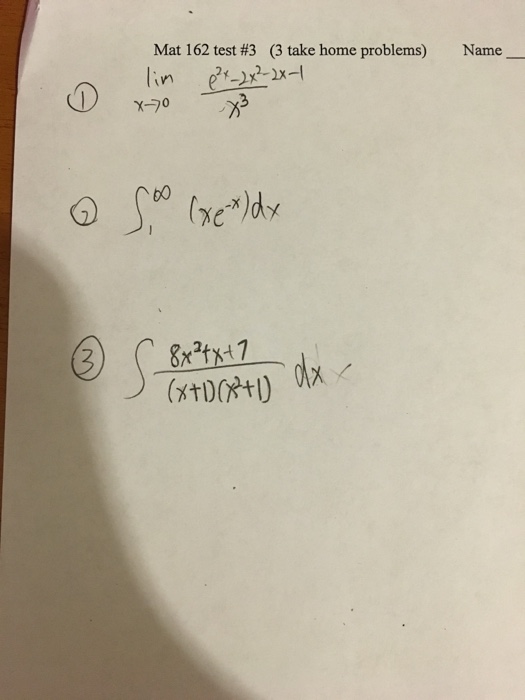 Mat 162 test #3 (3 take home problems) Name
① lim x→0 (e^2x-2x²-2x-1)/x³
② ∫₁^∞ (xe^-x)dx
③ ∫ (8x²+x+7)/((x+1)(x²+1)) dx